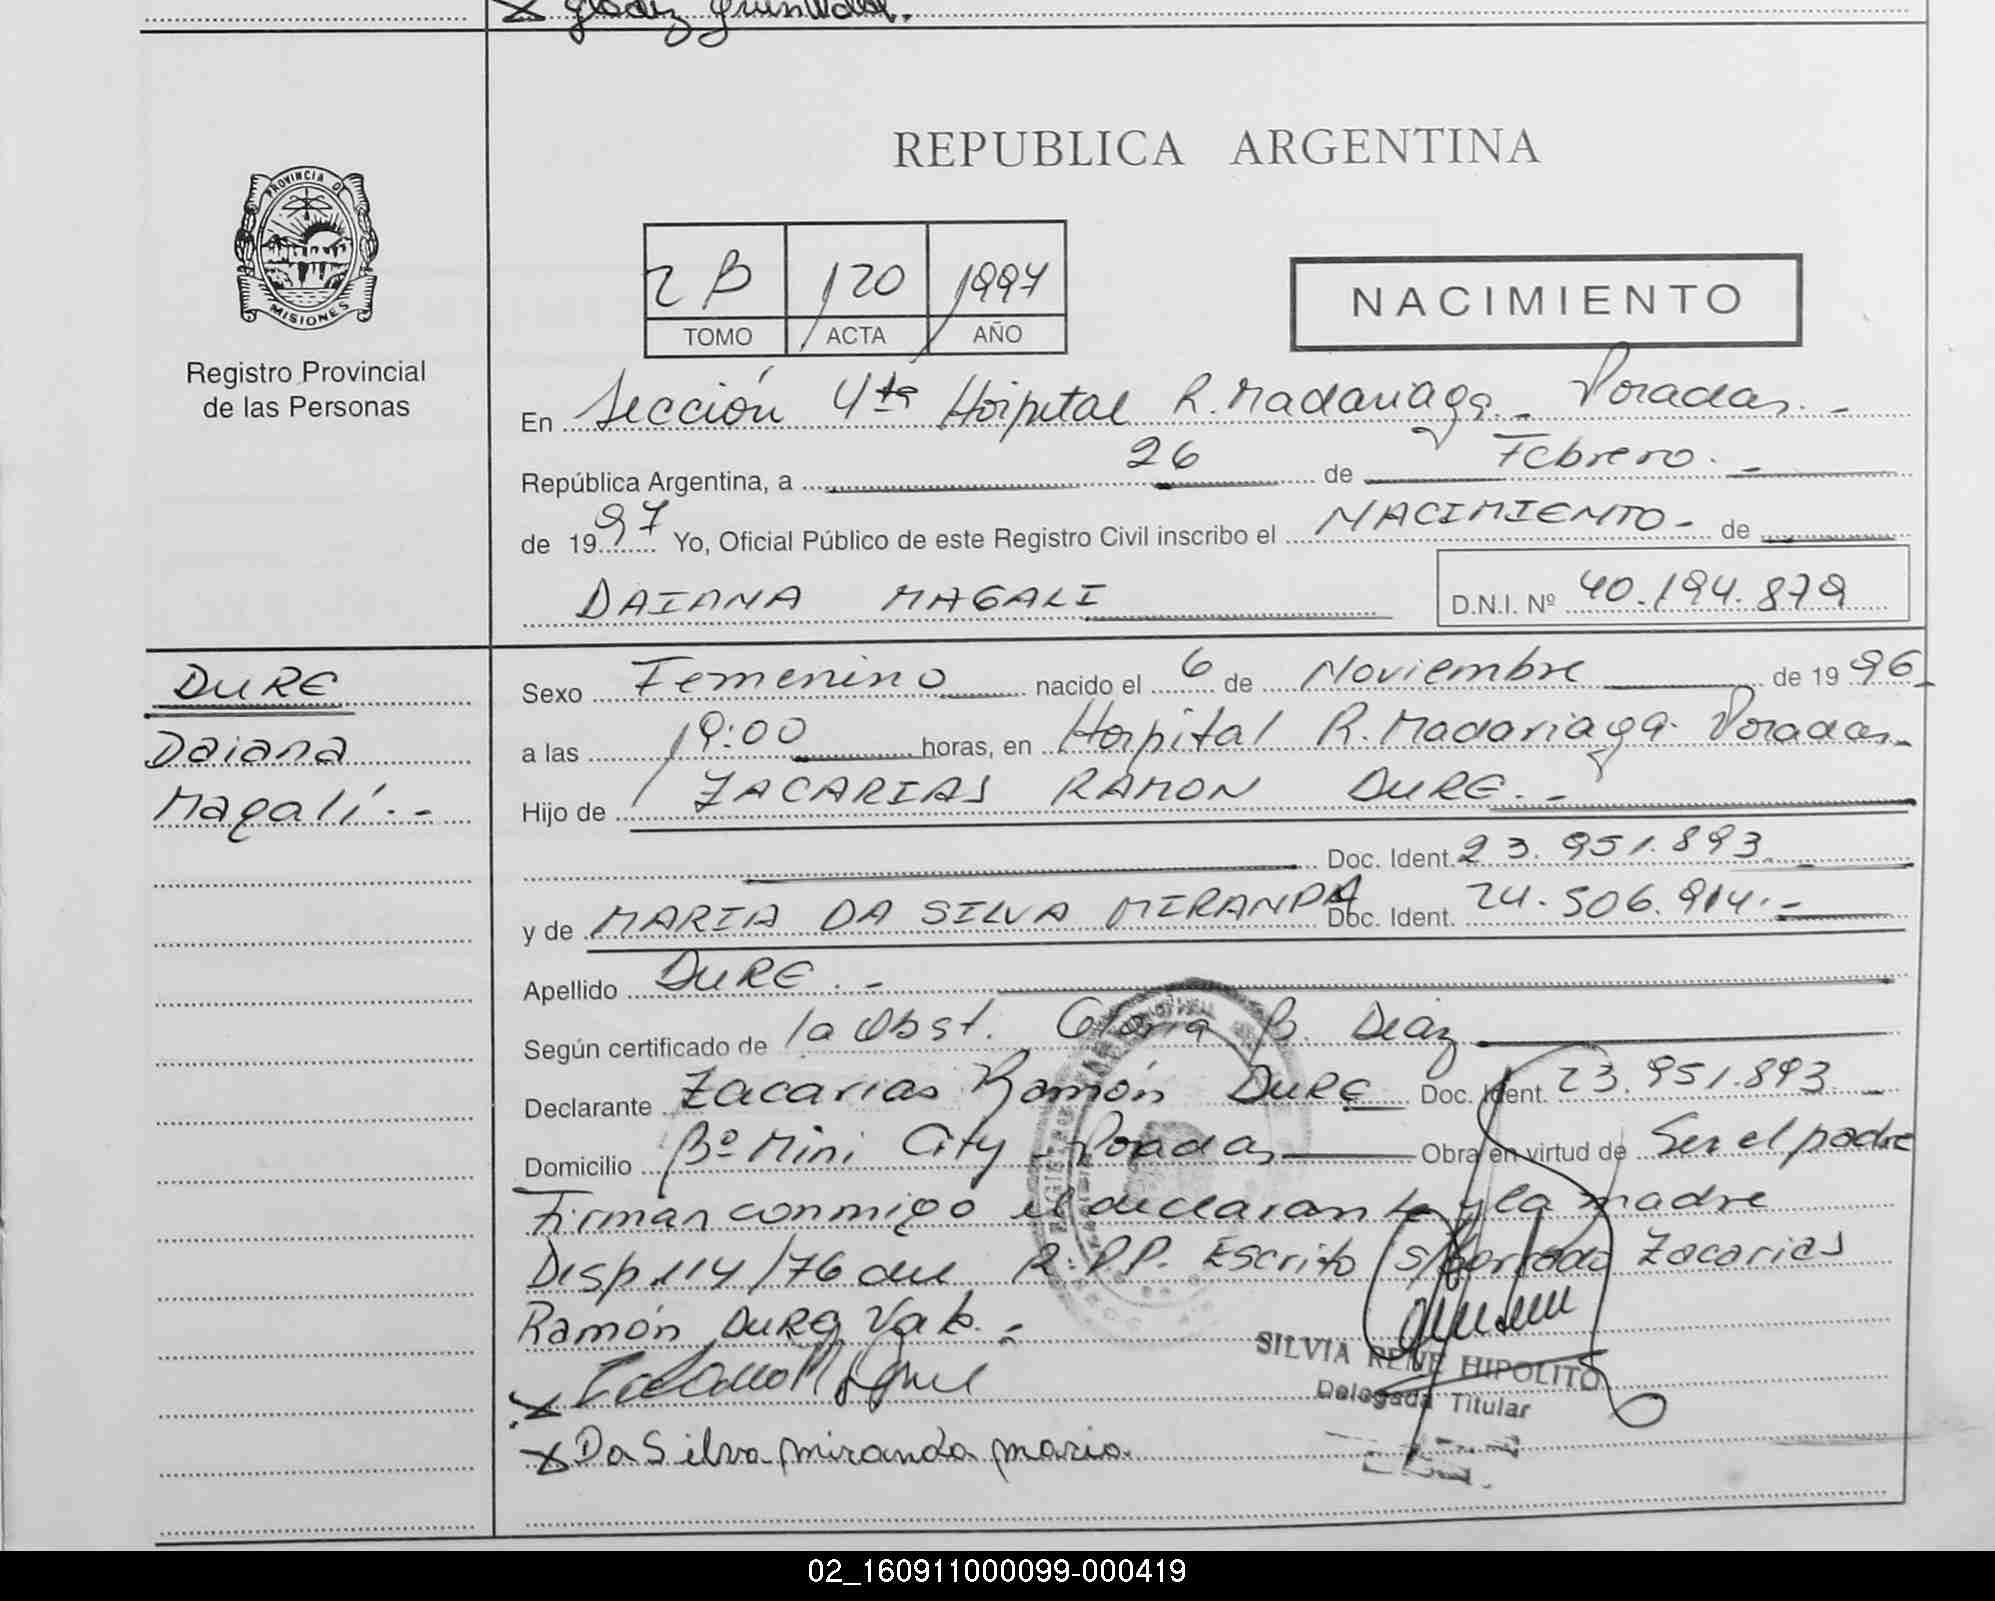 REPUBLICA ARGENTINA
PROVINCIA DE
MISIONES
Registro Provincial
de las Personas
2 B 120 1997
TOMO ACTA AÑO
NACIMIENTO
En Sección 4ta Hospital R. Madariaga - Posadas. -
República Argentina, a 26 de Febrero. -
de 1997 Yo, Oficial Público de este Registro Civil inscribo el NACIMIENTO - de
DAIANA MAGALI D.N.I. Nº 40.194.879
DURE
Daiana
Magalí. -
Sexo Femenino nacido el 6 de Noviembre de 1996
a las 19:00 horas, en Hospital R. Madariaga. Posadas -
Hijo de ZACARIAS RAMON DURE. -
Doc. Ident. 23.951.893. -
y de MARIA DA SILVA MIRANDA Doc. Ident. 24.506.914. -
Apellido DURE. -
Según certificado de la Obst. Gloria B. Diaz
Declarante Zacarias Ramón DURE Doc. Ident. 23.951.893. -
Domicilio Bº Mini City - Posadas Obra en virtud de Ser el padre
Firman conmigo el declarante y la madre
Disp. 114/76 del R.P.P. Escrito s/borrado Zacarias
Ramón DURE Vale. -
SILVIA RENE HIPOLITO
Delegada Titular
x Da Silva miranda maria.
02_160911000099-000419